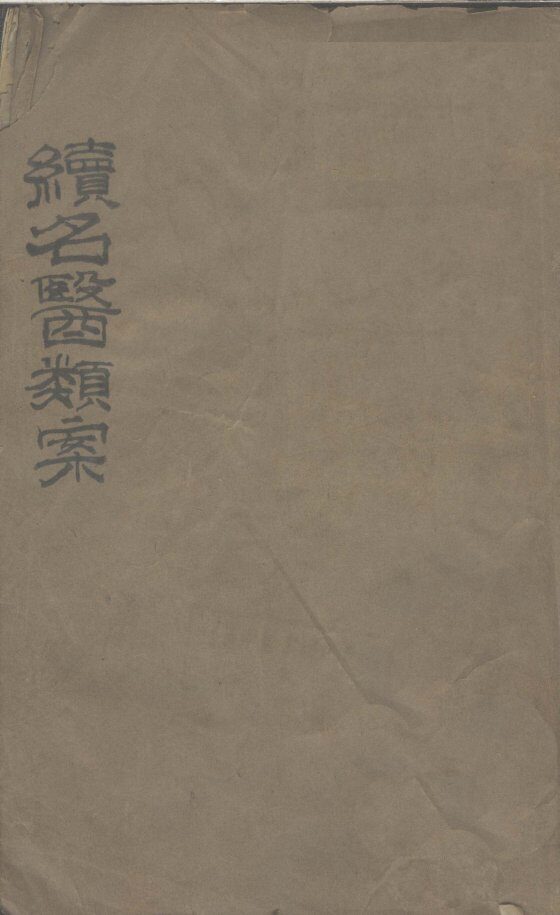 續名醫類案